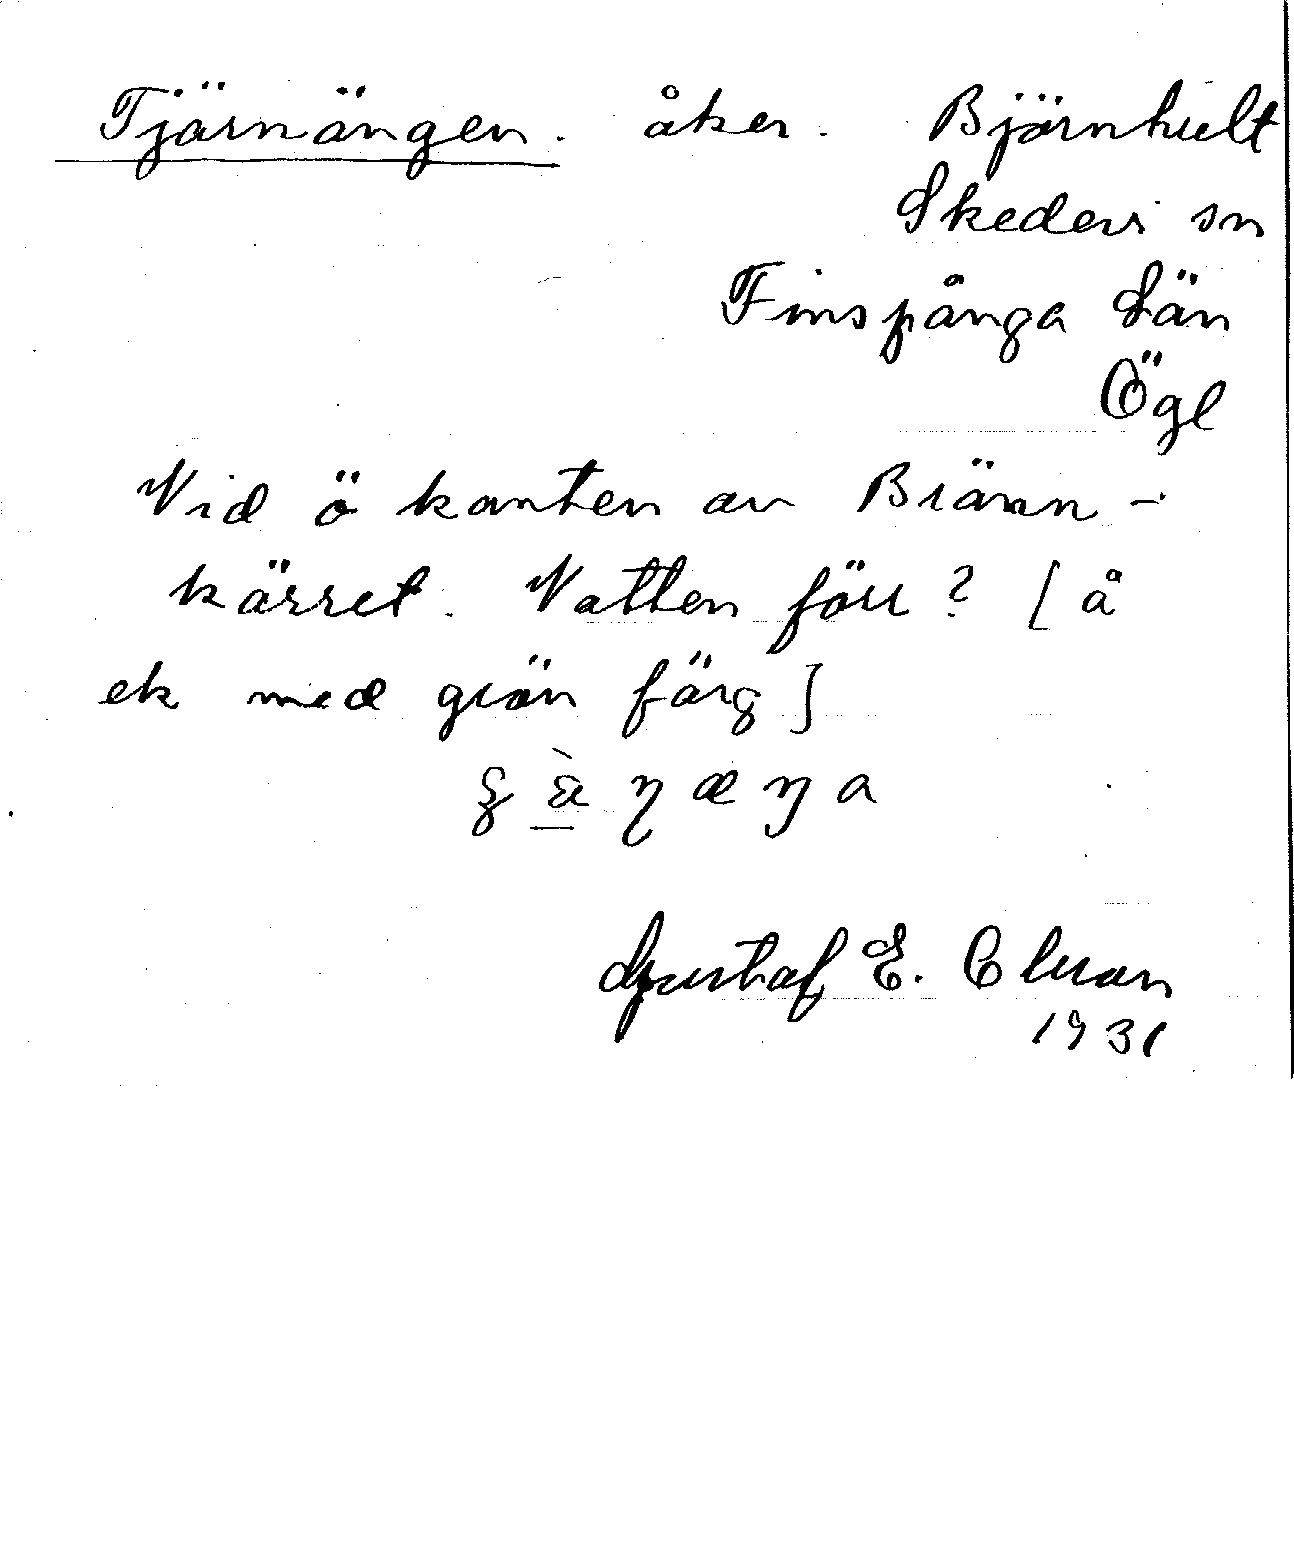 Tjärnängen. åker. Björnhult
Skedevi sn
Finspånga Län
Ögl
Vid ö kanten av Bränn-
kärret. Vatten förr? [å
ek med grön färg]
Gustaf E.
1931